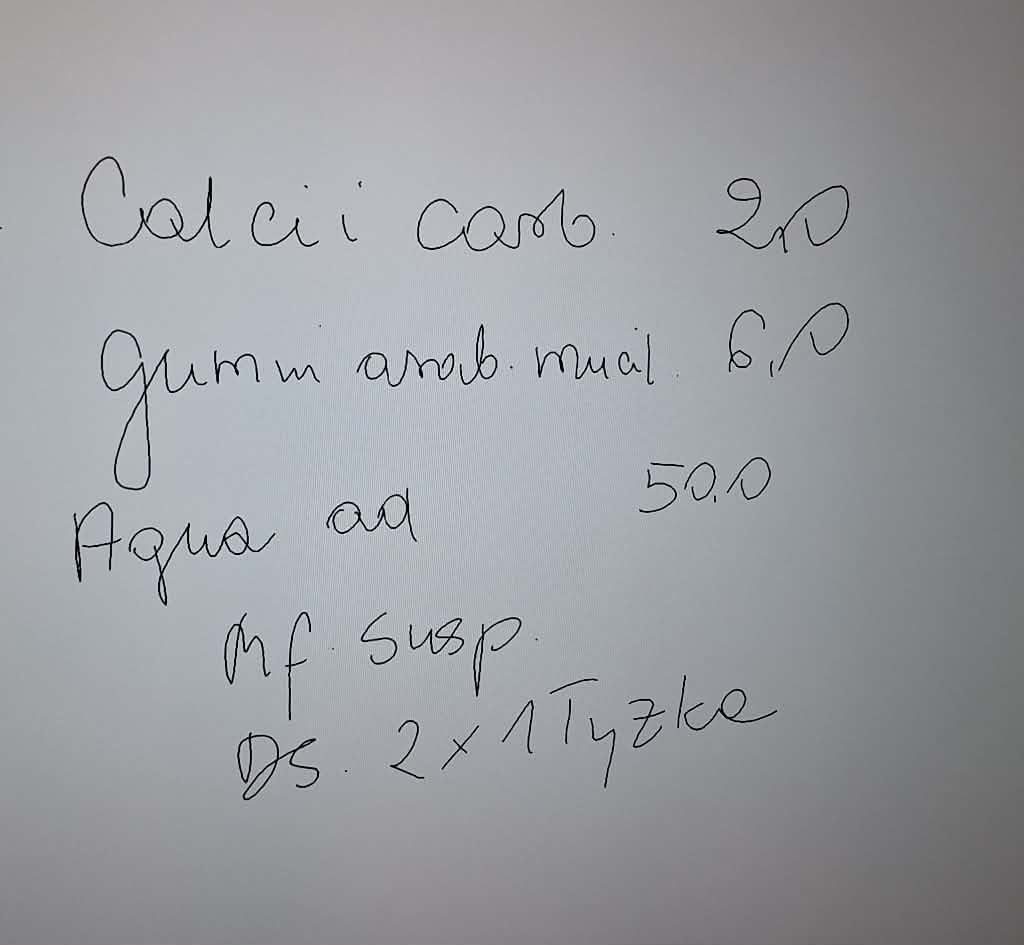 Calcii carb. 2,0
Gummi arab. mucil. 6,0
Aqua ad 50,0
Mf. Susp.
DS. 2 x 1 łyżka